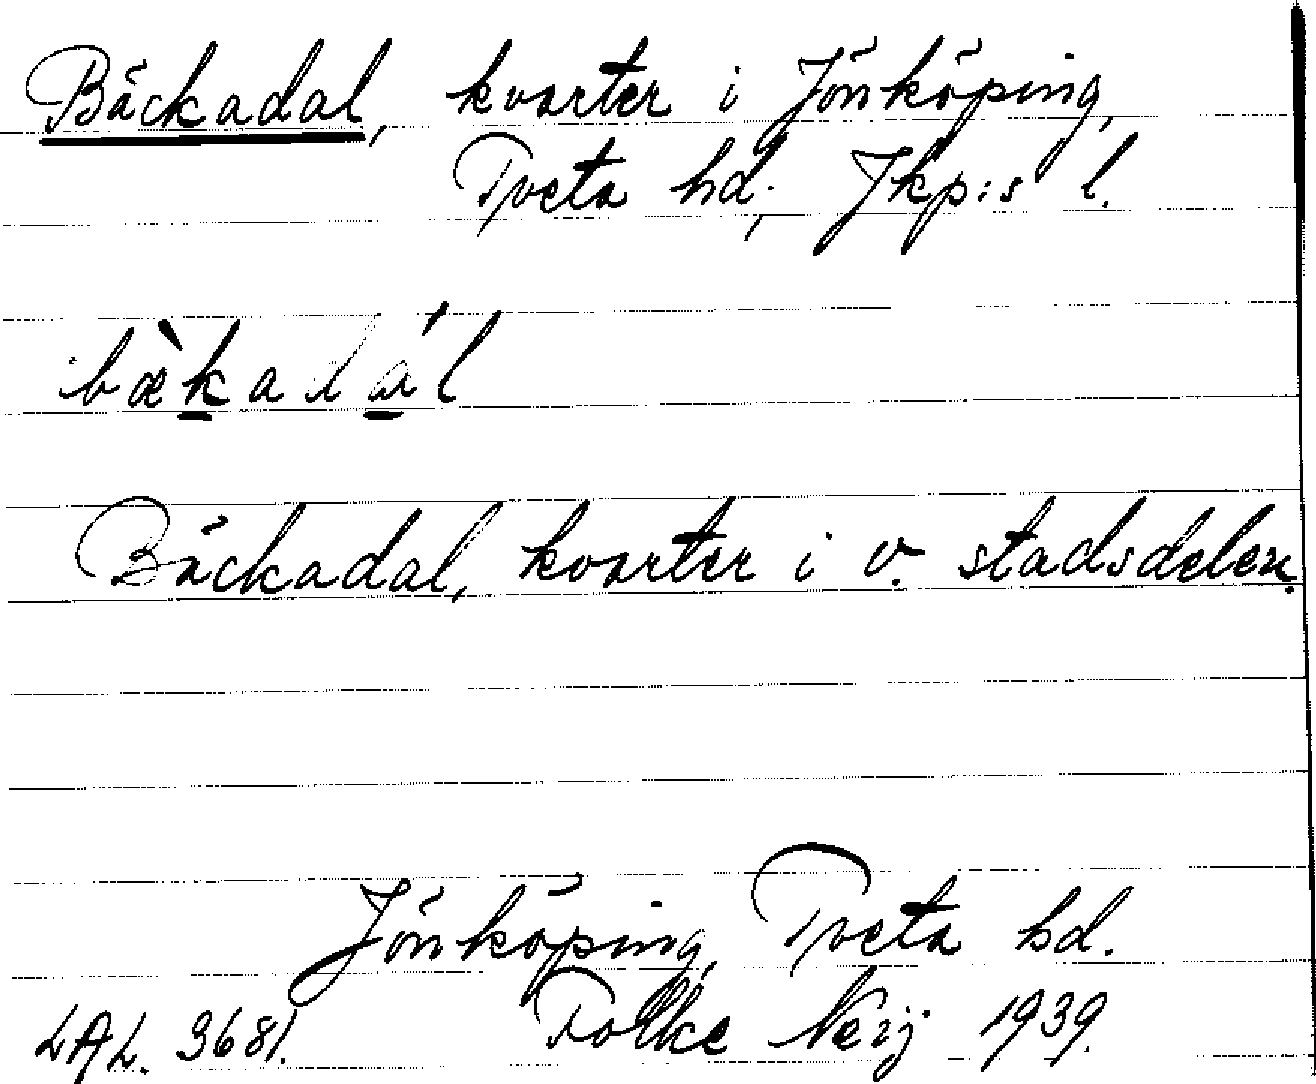 Bäckadal, kvarter i Jönköping,
Tveta hd, Jkp:s l.
bæ̀kadál
Bäckadal, kvarter i v. stadsdelen.
Jönköping, Tveta hd.
LAL. 3681. Folke Neij 1939.